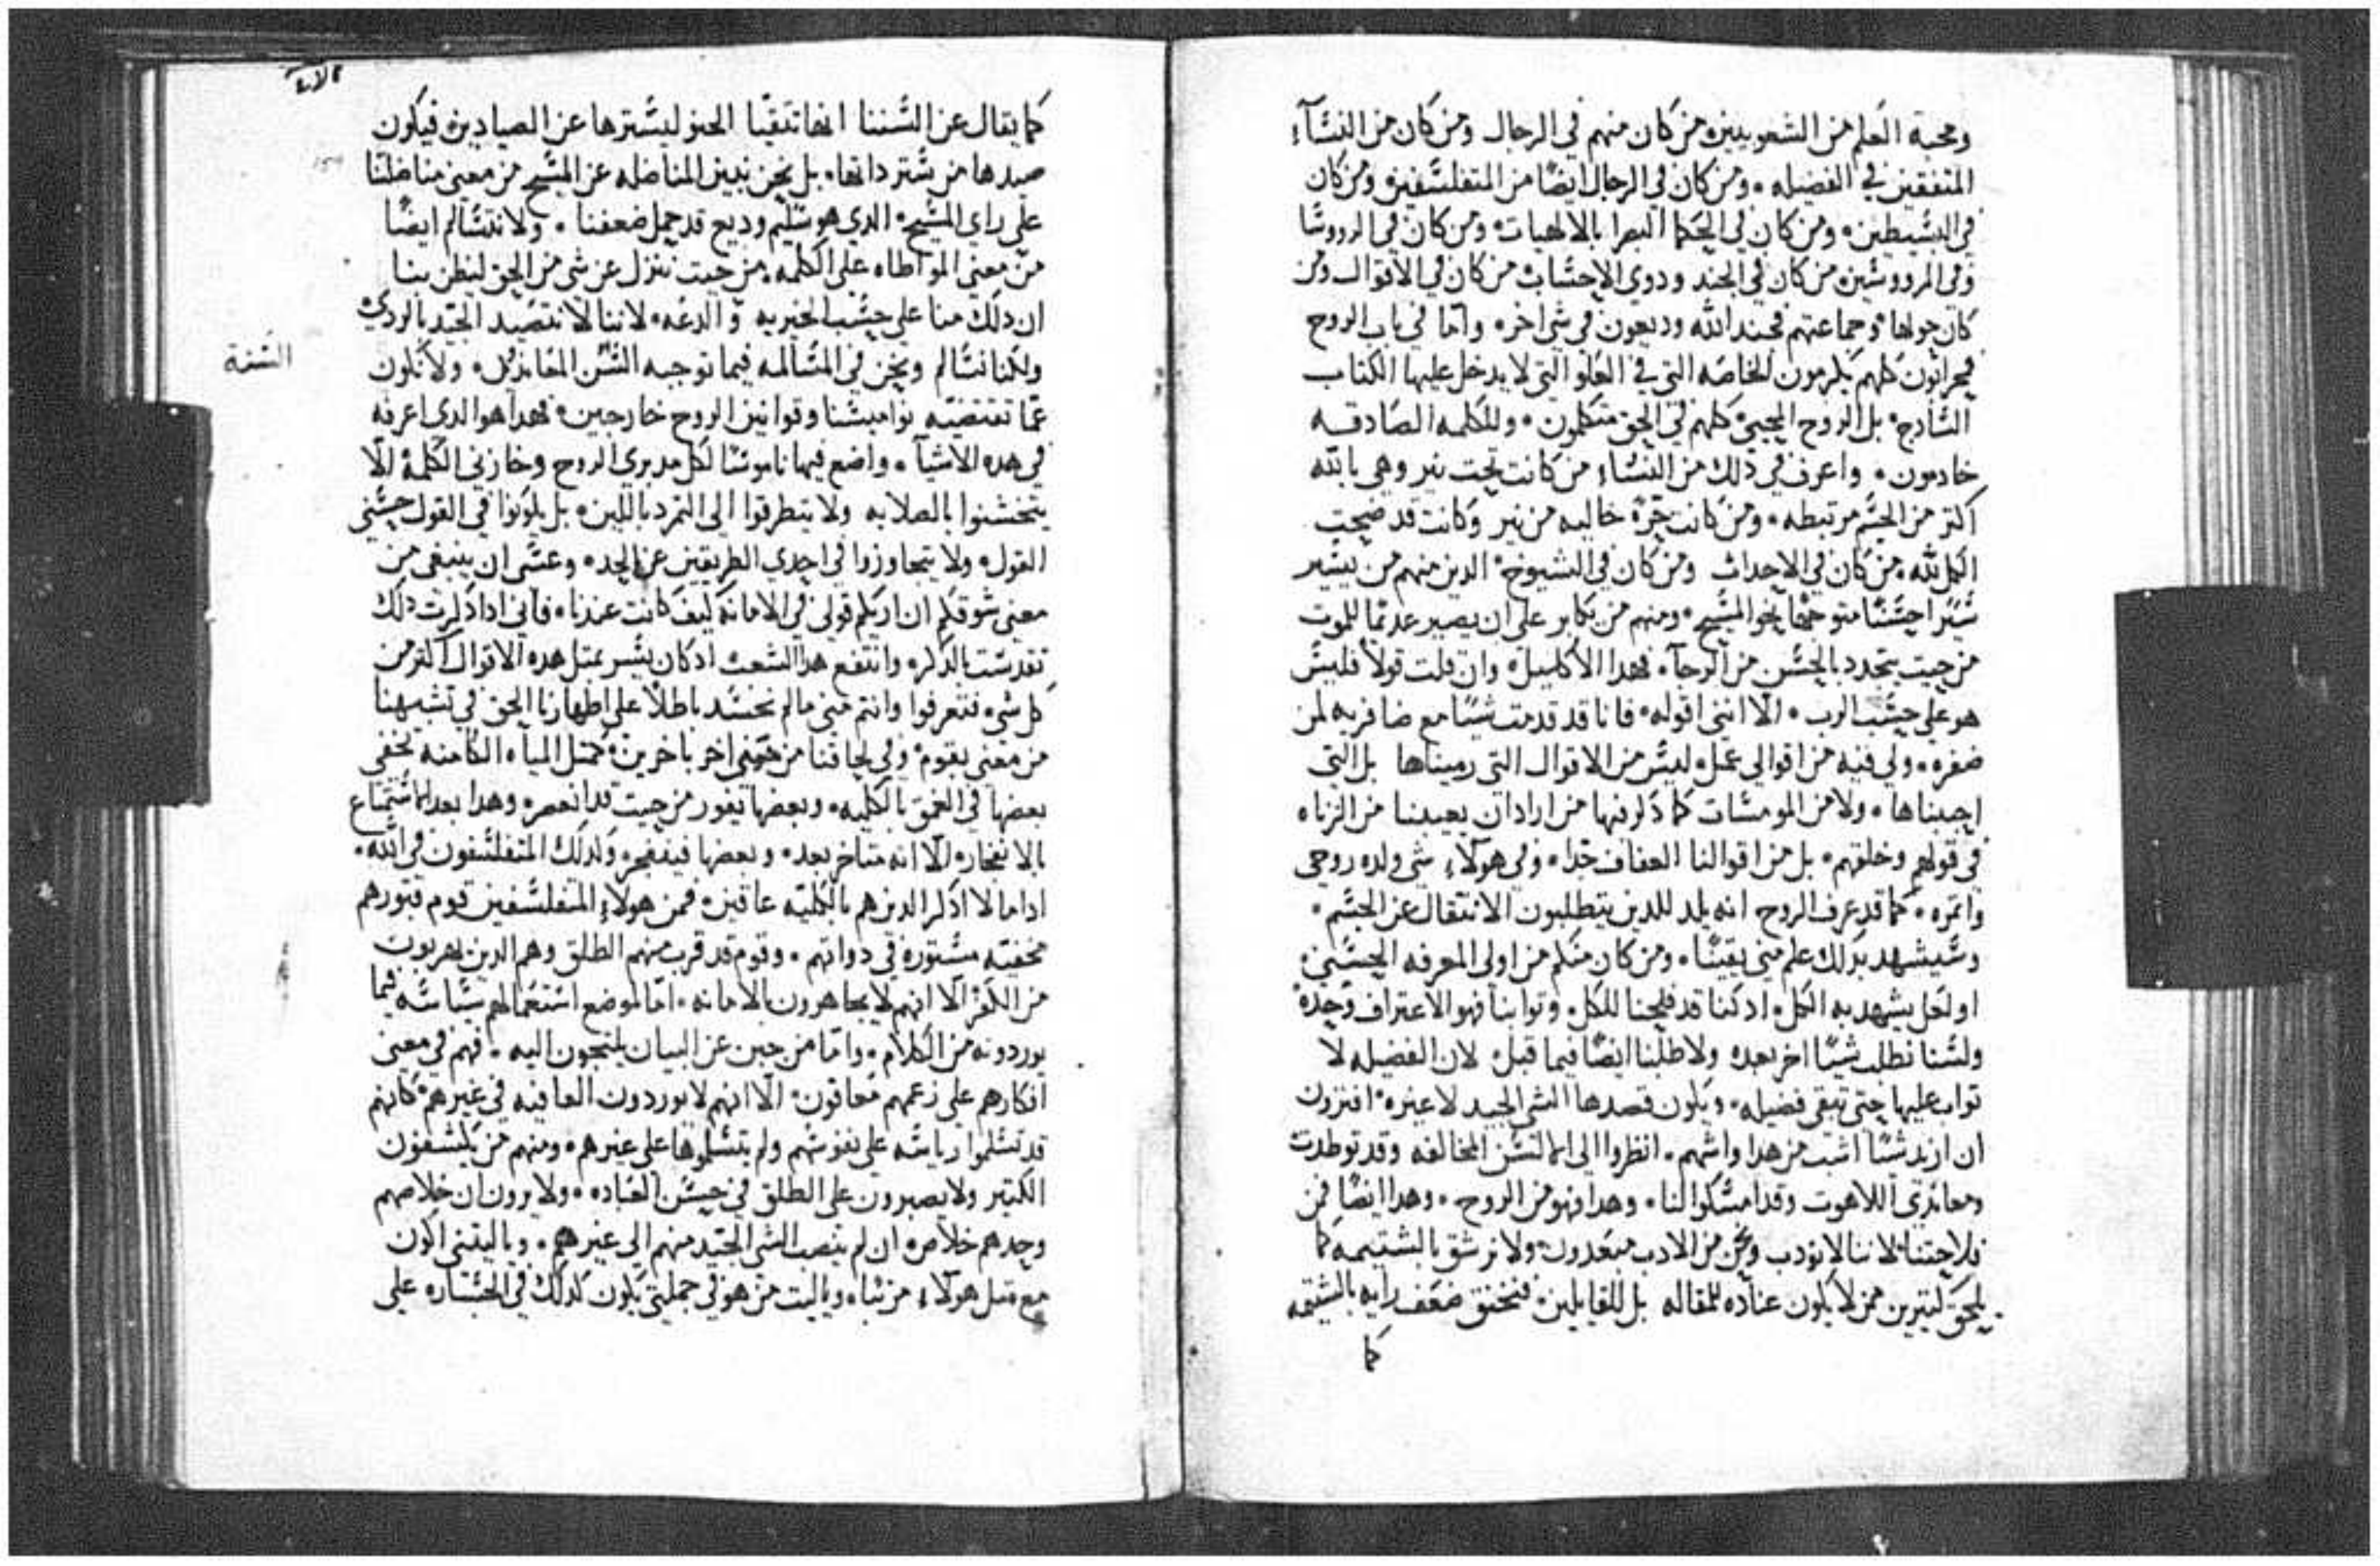 ومحبة العلم من الشعوبيين من كان منهم في الرجال ومن كان من النسآء
المتفقين في الفضيله ومن كان في الرجال ايضًا من المتفلسفين ومن كان
في البسيطين ومن كان في الحكما البصرا بالالهيات ومن كان في الرووسا
وفي المرووسين من كان في الجند ودوي الاحساب من كان في الاقوال ومن
كان حولها وجماعتهم فجند الله وديعون في شي اخر واما في باب الروح
كلهم يكرمون الخاصه التي في العلو التي لا يدخل عليها الكتاب
السادج بل الروح المحيي كلهم في الحق متكلمون وللكلمه الصادقه
خادمون واعرف في ذلك من النساء من كانت تحت نير وهي بالله
اكتر من الجسم مرتبطه ومن كانت حرّة خاليه من نير وكانت قد ضحت
الكل لله من كان في الاحداث ومن كان في الشيوخ الدين منهم من يسير
سيرًا حسنًا متوجهًا نحو المسيح ومنهم من يكابر على ان يصير عديمًا للموت
من حيت يتجدد بالحسن من الرجآء فهدا الاكليل وان قلت قولًا فليس
هو على حسب الرب الّا انني اقوله فانا قد قدمت شيا مع ضافريه لمن
ضفره ولي فيه من اقوالي عمل ليس من الاقوال التي رميناها بل التي
اجبناها ولا من المومسات كما ذكر فيها من اراد ان يعيبنا من الزناه
في قولهم وخلقهم بل من اقوالنا العفاف جدًا وفي هولآء شي ولده روحي
واتمره كما قد عرف الروح انه يلد للدين يتطلبون الانتقال عن الجسم
وسيشهد بدلك علم مني يقينًا ومن كان منكم من اولي المعرفه الحسني
او لعل يشهد به الكل اد كنا قد فلحنا للكل وتوابنا فهو الاعتراف وحده
ولسنا نطلب شيًا اخر بعده ولا طلبنا ايضًا فيما قبل لان الفضيله لا
تواب عليها حتى تبقى فضيله ويكون قصدها الشي الجيد لا غيره افترون
ان ازيد شيًا اتبت من هدا واشهم انظروا الى الالسن المخالفه وقد توطدت
ومعاندي اللاهوت وقد امسكوا لنا وهدا فهو من الروح وهدا ايضًا فمن
فلاحتنا لاننا لا نودب ونحن من الادب مبعدون ولا نرشق بالشتيمه كما
يلحق كتيرين ممن لا يكون عناده للمقاله بل للقايلين فتخنق ضعف رايه بالشتيمه
كما
الآبا
كما يقال عن السننا انها تتقيّا الحبر ليسترها عن الصيادين فيكون
صيدها من ستر داتها بل نحن نبين المناضله عن المسيح من معنى مناضلتنا
على راي المسيح الدي هو سليم وديع قد حمل ضعفنا ولا نتسالم ايضًا
من معنى المواطاه على الكلمه من حيت ننزل عن شي من الحق ليظن بنا
ان دلك منا على حسب الخيريه والدعه لاننا لا نتصيد الجيد بالردي
ولكنا نتسالم ونحن في المسالمه فيما توجبه السنن المعاندك ولا نكون
السنة
عمّا تقتضيه نواميسنا وقوانين الروح خارجين فهدا هو الدي اعرفه
في هده الاشيآ واضع فيها ناموسًا لكل مدبري الروح وخازني الكلمة الّا
يتخشنوا بالصلابه ولا يتطرقوا الى التمرد باللين بل يكونوا في القول حسني
القول ولا يتجاوزوا في احدي الطريقين عن الحد وعسى ان ينبغي من
معنى شوقكم ان اريكم قولي في الامانة كيف كانت عندنا فاني ادا ذكرت دلك
تقدست بالدكر وانتفع هدا الشعب اد كان يسر بمتل هده الاقوال اكتر من
كل شي فتعرفوا وانتم مني ما لم نحسد باطلًا على اظهارنا الحق في تشبهنا
من معنى بقوم وفي لحاقنا من معنى اخر باخرين كمتل المياه الكامنه تخفى
بعضها في العمق بالكليه وبعضها يفور من حيت قد انعصر وهدا بعد الاستماع
بالانفجار الّا انه متاخر بعد وبعضها فينفجر وكدلك المتفلسفون في الله
اداما لا ادكر الدين هم بالكليّه عاقين فمن هولآء المتفلسفين قوم قبورهم
مخفيّه مستوره في دواتهم وقوم قد قرب منهم الطلق وهم الدين يهربون
من الكفر الّا انهم لا يجاهرون بالامانه امّا لموضع استعمالهم سياسه فيما
يوردونه من الكلام وامّا من جبن عن البيان يلتجون اليه فهم في معنى
افكارهم على زعمهم معافون الّا انهم لا يوردون العافيه في غيرهم كانهم
قد تسلموا رياسه على نفوسهم ولم يتسلموها على غيرهم ومنهم من يكشفون
الكنيز ولا يصبرون على الطلق في حسن العباده ولا يرون ان خلاصهم
وحدهم خلاص ان لم ينصب الشي الجيّد منهم الى غيرهم ويا ليتني اكون
مع متل هولآء مرتبا ويا ليت من هو في جملتي يكون كدلك في الجساره على